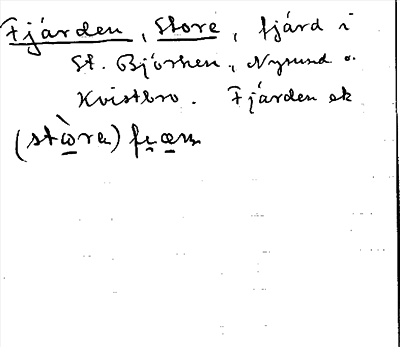 Fjärden, Store, fjärd i
St. Björken, Nysund o.
Kvistbro. Fjärden ek
(stò̱ra)